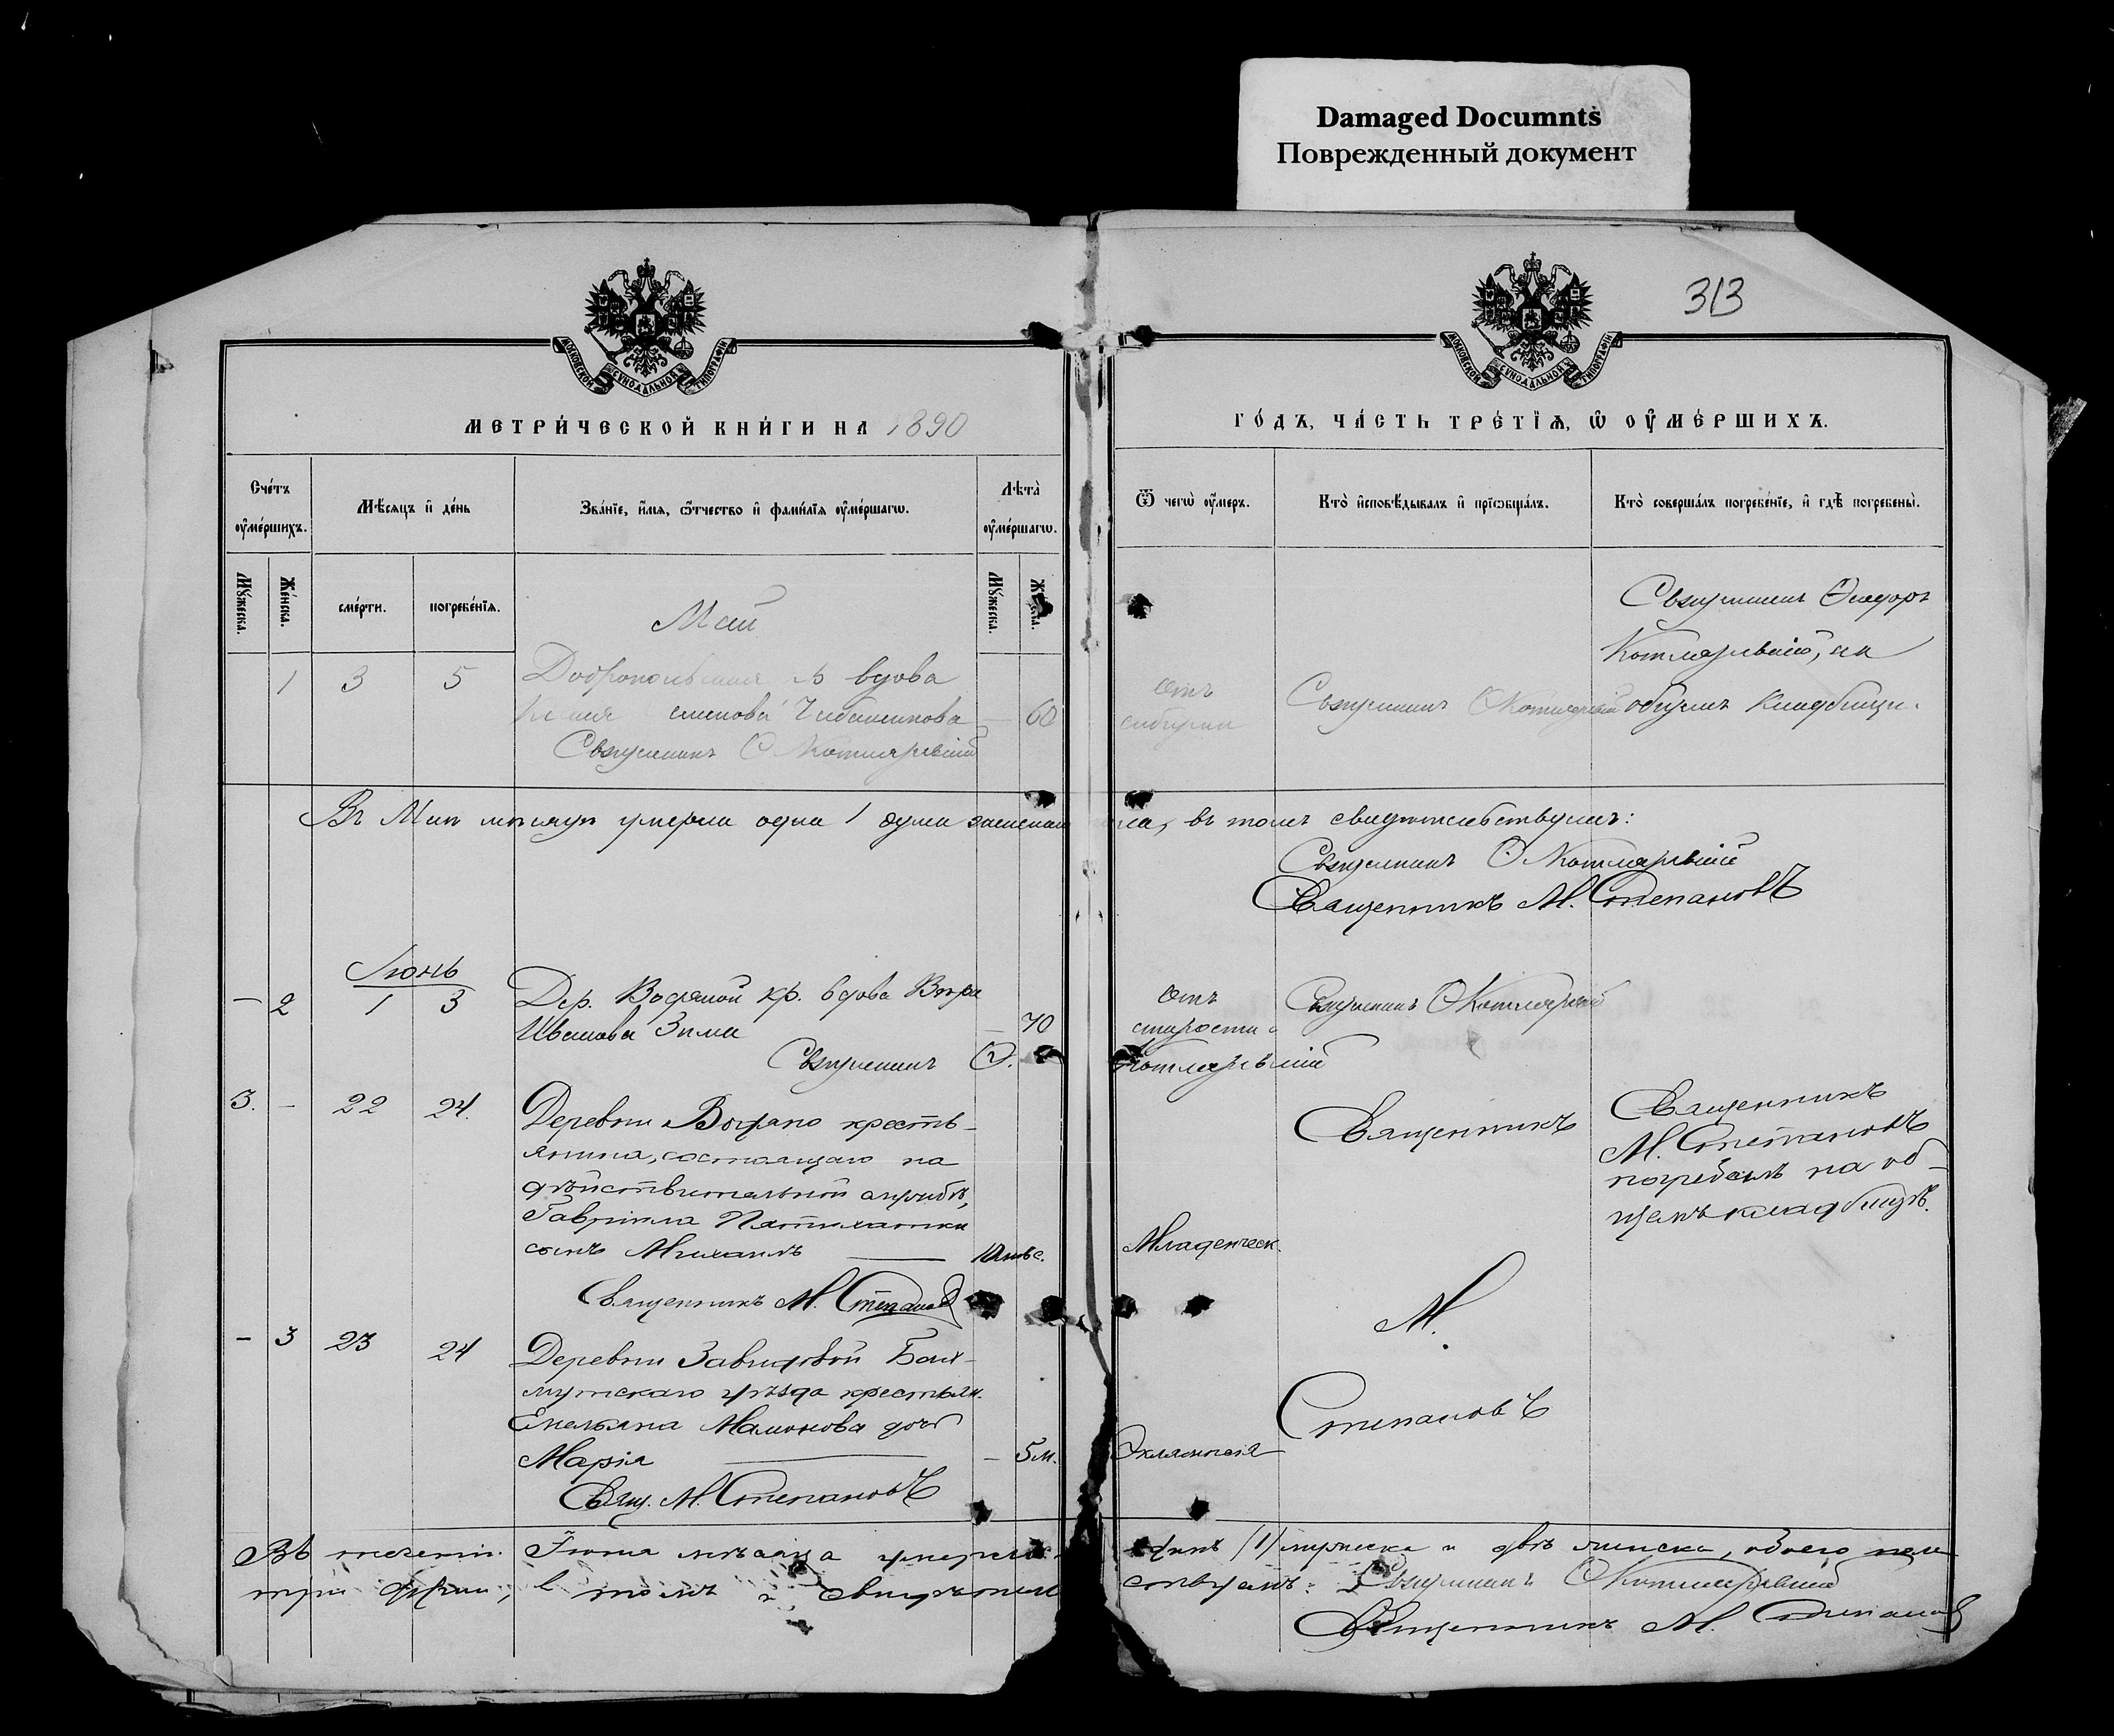 Damaged Documnts
Поврежденный документ
313
МОСКОВСКОЙ СУНОДАЛЬНОЙ ТИПОГРАФІИ
МОСКОВСКОЙ СУНОДАЛЬНОЙ ТИПОГРАФІИ
МЕТРИ́ЧЕСКОЙ КНИ́ГИ НА 1890
ГО́ДЪ, ЧА́СТЬ ТРЕ́ТЇѦ, Ѡ҆ ОУ҆МЕ́РШИХЪ.
Сче́тъ оу҆ме́ршихъ.
Мѣ́сѧцъ и҆ де́нь
Зва́нїе, и҆́мѧ, ѻ҆́тчество и҆ фами́лїѧ оу҆ме́ршагѡ.
Лѣта̀ оу҆ме́ршагѡ.
Ѿ чегѡ̀ оу҆́меръ.
Кто̀ и҆сповѣ́дывалъ и҆ прїѡбща́лъ.
Кто̀ соверша́лъ погребе́нїе, и҆ гдѣ̀ погребены̀.
Му́жеска.
Же́нска.
сме́рти.
погребе́нїѧ.
Му́жеска.
Май
1 3 5
вдова
Чебаненкова
— 60
Священникъ Ѳ Котляревскій
Отъ
Священникъ Ѳ Котляревскій
Священникъ Ѳеодоръ
Котляревскій, на
общемъ кладбищѣ.
Въ Маѣ мѣсяцѣ умерла одна 1 душа женскаго пола, въ томъ свидѣтельствуемъ:
Священникъ Ѳ Котляревскій
Священникъ М. Степановъ
Іюнь
— 2 1 3
Дер. Водяной кр. вдова Вѣра
Иванова Зима
— 70
Священникъ Ѳ. Котляревскій
Отъ
старости
Священникъ Ѳ Котляревскій
3. — 22 24.
Деревни Водяно крестья-
янина, состоящаго на
дѣйствительной службѣ,
Гавріила Пятихатки
сынъ Михаилъ
10 мѣс.
Священникъ М. Степановъ
Младенческ.
Священникъ
М.
Степановъ
Священникъ
М. Степановъ
погребалъ на об-
щемъ кладбищѣ.
— 3 23 24
Деревни Завидовой Бах-
мутскаго уѣзда крестьян.
Емельяна Мамонова дочь
Марія
— 5 м.
Свящ. М. Степановъ
Эклямпсія
Въ теченіи Іюня мѣсяца умерло одинъ (1) мужеска и двѣ женска, обоего пола
три души, въ томъ и свидѣтельствуемъ: Священникъ Ѳ Котляревскій
Священникъ М. Степановъ